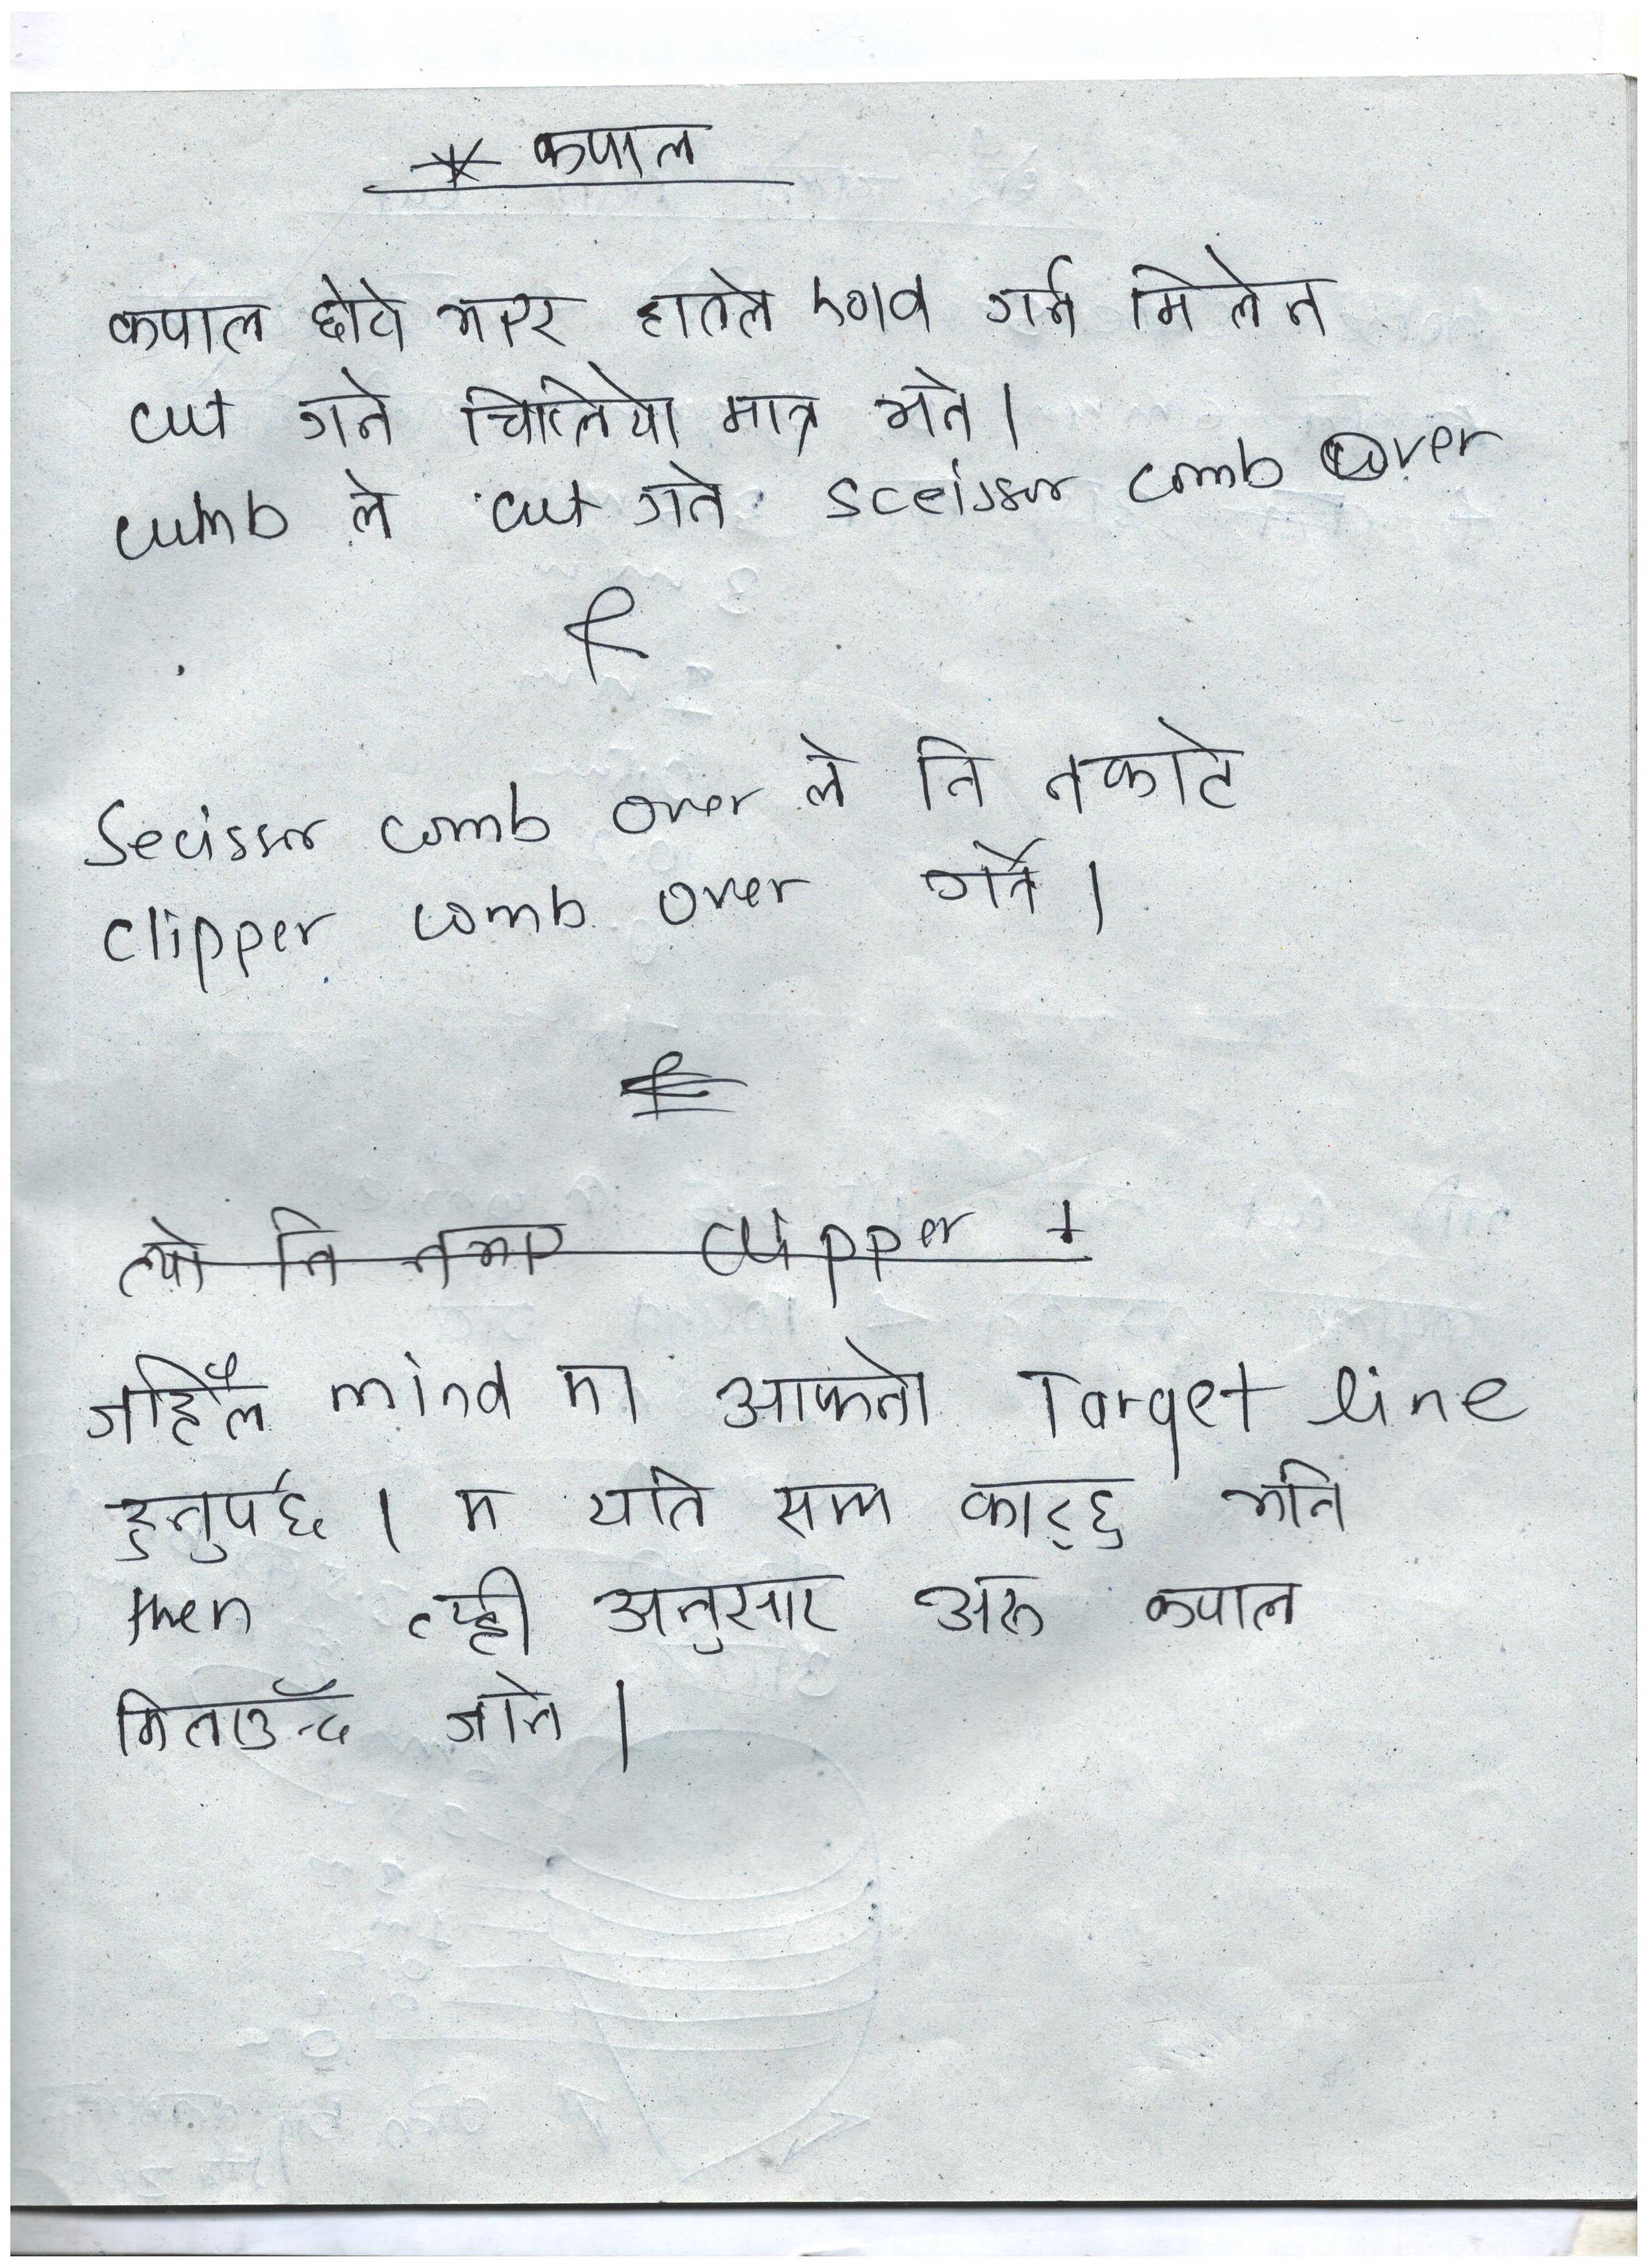 * कपाल
कपाल छोटो भएर हातले गर्न मिलेन
cut गर्ने चिप्लियो मात्र भने।
cumb ले cut गर्ने sceissor comb over
र
Secissor comb over ले नि नकाटे
clipper comb over गर्ने।
त्यो नि नभए clipper +
जहिलै mind मा आफ्नो Target line
हुनुपर्छ । म यति सम्म काट्छु भनि
then त्यही अनुसार अरु कपाल
मिलाउँदै जाने।